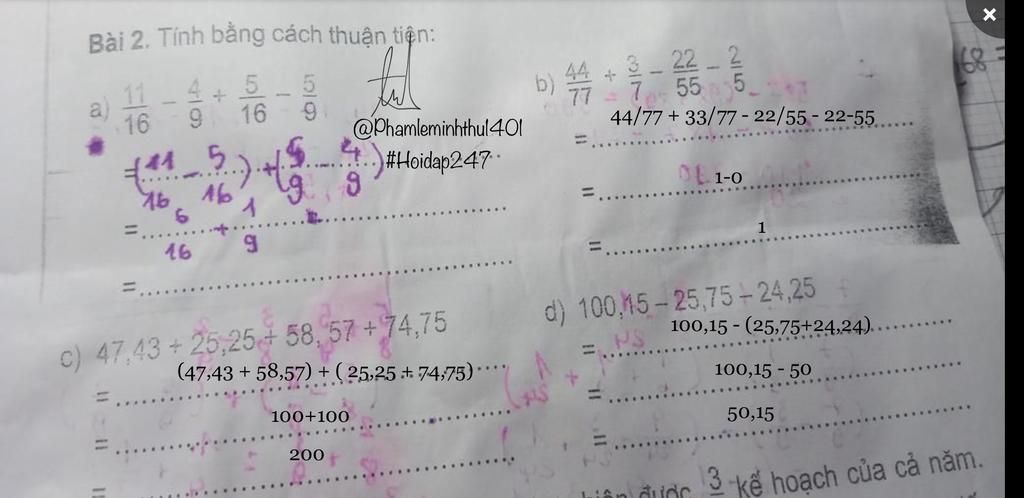 Bài 2. Tính bằng cách thuận tiện:
a) 11/16 - 4/9 + 5/16 - 5/9
@Phamleminhthu1401
#Hoidap247
=(11/16 - 5/16) + (5/9 - 4/9)
= 6/16 + 1/9
=
b) 44/77 + 3/7 - 22/55 - 2/5
= 44/77 + 33/77 - 22/55 - 22-55
= 1-0
= 1
c) 47,43 + 25,25 + 58,57 + 74,75
= (47,43 + 58,57) + ( 25,25 + 74,75)
= 100+100
= 200
d) 100,15 - 25,75 - 24,25
= 100,15 - (25,75+24,24)
= 100,15 - 50
= 50,15
được 3 kế hoạch của cả năm.
68 =